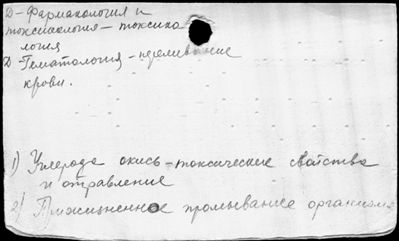 Д - Фармакология и
токсикология - токсико
логия
Д - Гематология - переливание
крови.
1) Углерода окись - токсические свойства
и отравление
2) Прижизненное промывание организма